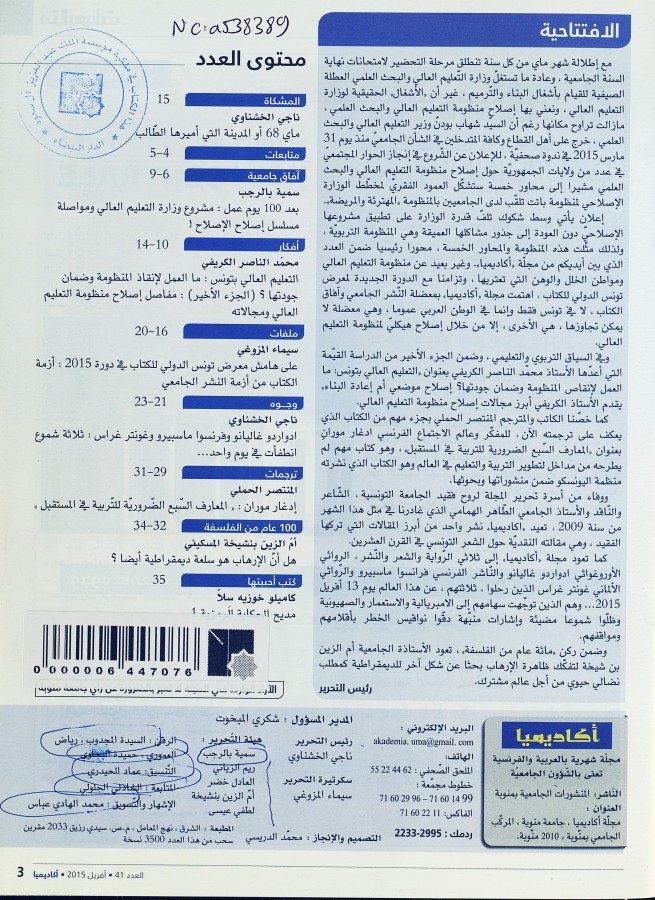 الافتتاحية
مع إطلالة شهر ماي من كل سنة تنطلق مرحلة التحضير لامتحانات نهاية
السنة الجامعية ، وعادة ما تستغلّ وزارة التعليم العالي والبحث العلمي العطلة
الصيفية للقيام بأشغال البناء والترميم ، غير أن «الأشغال» الحقيقية لوزارة
التعليم العالي ، ونعني بها إصلاح منظومة التعليم العالي والبحث العلمي ،
مازالت تراوح مكانها رغم أن السيد شهاب بودن وزير التعليم العالي والبحث
العلمي ، خرج على أهل القطاع وكافة المتدخلين في الشأن الجامعيّ منذ يوم 31
مارس 2015 في ندوة صحفيّة ، للإعلان عن الشّروع في إنجاز الحوار المجتمعيّ
في عدد من ولايات الجمهوريّة حول إصلاح منظومة التعليم العالي والبحث
العلمي مشيرا إلى محاور خمسة ستشكّل العمود الفقريّ لمخطّط الوزارة
الإصلاحي لمنظومة باتت تلقّب لدى الجامعيين بالمنظومة «المهترئة والمريضة».
إعلان يأتي وسط شكوك تلفّ قدرة الوزارة على تطبيق مشروعها
الإصلاحي دون العودة إلى جذور مشاكلها العميقة وهي المنظومة التربويّة ،
ولذلك مثّلت هذه المنظومة والمحاور الخمسة ، محورا رئيسيا ضمن العدد
الذي بين أيديكم من مجلّة «أكاديميا». وغير بعيد عن منظومة التعليم العالي
ومواطن الخلل والوهن التي تعتريها ، وتزامنا مع الدورة الجديدة لمعرض
تونس الدولي للكتاب ، اهتمت مجلة «أكاديميا» بمعضلة النّشر الجامعي وآفاق
الكتاب ، لا في تونس فقط وإنما في الوطن العربي عموما ، وهي معضلة لا
يمكن تجاوزها ، هي الأخرى ، إلا من خلال إصلاح هيكليّ لمنظومة التعليم
العالي.
و في السياق التربوي والتعليمي ، وضمن الجزء الأخير من الدراسة القيّمة
التي أعدّها الأستاذ محمّد الناصر الكريفي بعنوان «التعليم العالي بتونس: ما
العمل لإنقاص المنظومة وضمان جودتها؟ إصلاح موضعي أم إعادة البناء»
يقدم الأستاذ الكريفي أبرز مجالات إصلاح منظومة التعليم العالي.
كما خصّنا الكاتب والمترجم المنتصر الحملي بجزء مهم من الكتاب الذي
يعكف على ترجمته الآن ، للمفكّر وعالم الاجتماع الفرنسي ادغار موران
بعنوان «المعارف السبع الضرورية للتربية في المستقبل» ، وهو كتاب مهم لم
يطرحه من مداخل لتطوير التربية والتعليم في العالم وهو الكتاب الذي نشرته
منظمة اليونسكو ضمن منشوراتها وبحوثها.
ووفاء من أسرة تحرير المجلة لروح فقيد الجامعة التونسية ، الشّاعر
والنّاقد والأستاذ الجامعي الطّاهر الهمامي الذي غادرنا في مثل هذا الشهر
من سنة 2009 ، تعيد «أكاديميا» نشر واحد من أبرز المقالات التي تركها
الفقيد ، وهي مقالته النقديّة حول الشعر التونسي في القرن العشرين.
كما تعود مجلة «أكاديميا» إلى ثلاثي الرواية والشعر والنّشر ، الروائي
الأوروغوائي ادواردو غاليانو والنّاشر الفرنسي فرانسوا ماسبيرو والرّوائي
الألماني غونتر غراس الذين رحلوا ، ثلاثتهم ، عن هذا العالم يوم 13 أفريل
2015... وهم الذين توجّهت سهامهم إلى الامبريالية والاستعمار والصهيونية
وظلّوا شموعا مضيئة وإشارات منبّهة دقّوا نواقيس الخطر بأقلامهم
ومواقفهم.
وضمن ركن «مائة عام من الفلسفة» ، تعود الأستاذة الجامعية أم الزين
بن شيخة لتفكّك ظاهرة الإرهاب بحثا عن شكل آخر للديمقراطية كمطلب
نضالي حيوي من أجل عالم مشترك.
رئيس التحرير
NC: a538389
محتوى العدد
المشكاة 15
ناجي الخشناوي
ماي 68 أو المدينة التي أميرها الطّالب
متابعات 4-5
آفاق جامعية 6-9
سمية بالرجب
بعد 100 يوم عمل : مشروع وزارة التعليم العالي ومواصلة
مسلسل إصلاح الإصلاح !
أفكار 10-14
محمّد الناصر الكريفي
التعليم العالي بتونس : ما العمل لإنقاذ المنظومة وضمان
جودتها ؟ (الجزء الأخير) : مفاصل إصلاح منظومة التعليم
العالي ومجالاته
ملفات 16-20
سيماء المزوغي
على هامش معرض تونس الدولي للكتاب في دورة 2015 : أزمة
الكتاب من أزمة النشر الجامعي
وجــوه 21-23
ناجي الخشناوي
ادواردو غاليانو وفرنسوا ماسبيرو وغونتر غراس : ثلاثة شموع
انطفأت في يوم واحد...
ترجمات 29-31
المنتصر الحملي
إدغار موران : « المعارف السّبع الضّروريّة للتّربية في المستقبل »
100 عام من الفلسفة 32-34
أمّ الزين بنشيخة المسكيني
هل أنّ الإرهاب هو سلعة ديمقراطية أيضا ؟
كتب أحببتها 35
كاميلو خوزيه سلاّ
0 000006 447076
أكاديميا
مجلة شهرية بالعربية والفرنسية
تعنى بالشّؤون الجامعيّة
النّاشر: المنشورات الجامعية بمنوبة
العنوان :
مجلّة أكاديميا ، جامعة منوبة ، المركّب
الجامعي بمنّوبة ، 2010 منّوبة.
البريد الإلكتروني :
akademia. uma@gmail. com
الهاتف:
الملحق الصّحفي : 62 44 22 55
خطوط مجمّعة :
71 60 29 96 – 71 60 14 99
الفاكس: 11 22 60 71
ردمك : 2995-2233
المدير المسؤول : شكري المبخوت
رئيس التحرير
ناجي الخشناوي
سكرتيرة التحرير
سيماء المزوغي
التصميم والإنجاز : محمّد الدريسي
هيئة التّحرير :
سمية بالرجب
ريم الزياني
العادل خضر
أمّ الزين بنشيخة
لطفي عيسى
الرقن : السيدة المجدوب ، رياض
العموري ، حميدة البجاوي
التّنسيق: عماد الحيدري
المتابعة : الشاذلي الحلولي
الإشهار والتسويق : محمد الهادي عباس
المطبعة : الشرق ، نهج المعامل ، م.ص. سيدي رزيق 2033 مقرين
سحب من هذا العدد 3500 نسخة
العدد 41 • أفريل 2015 • أكاديميا 3